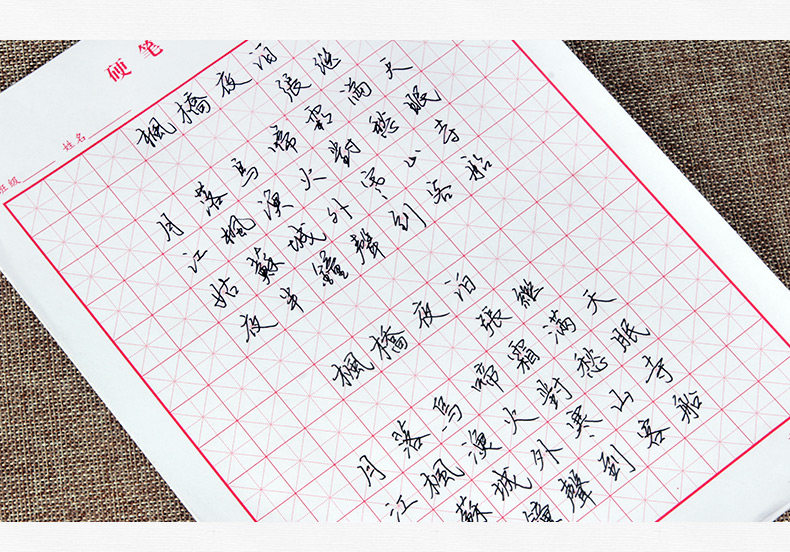 硬笔
班级
姓名
楓橋夜泊 張继
月落烏啼霜满天
江楓漁火對愁眠
姑蘇城外寒山寺
夜半鐘聲到客船
楓橋夜泊 張繼
月落烏啼霜滿天
江楓漁火對愁眠
蘇城外寒山寺
鐘聲到客船